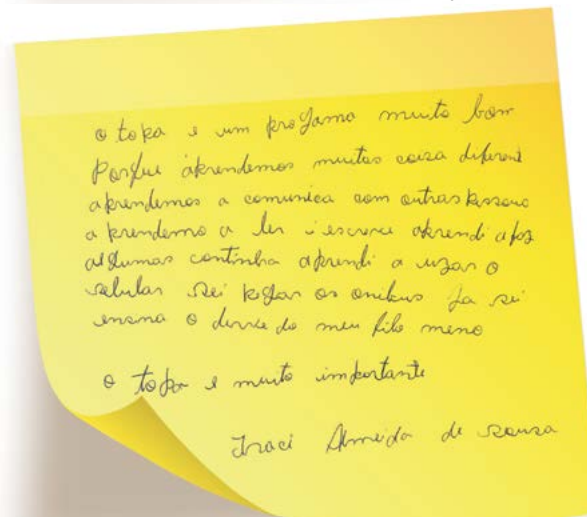 o topa e um profama muito bom
Porque aprendemos muitas coisa diferent
aprendemos a comunica com outras pessoas
aprendemo a ler i escreve aprendi afaz
algumas continha aprendi a uzar o
selular Sei pegar os onibus Ja sei
ensina o deveie do meu filo meno
o topa e muito importante
Iraci Almeida de Souza